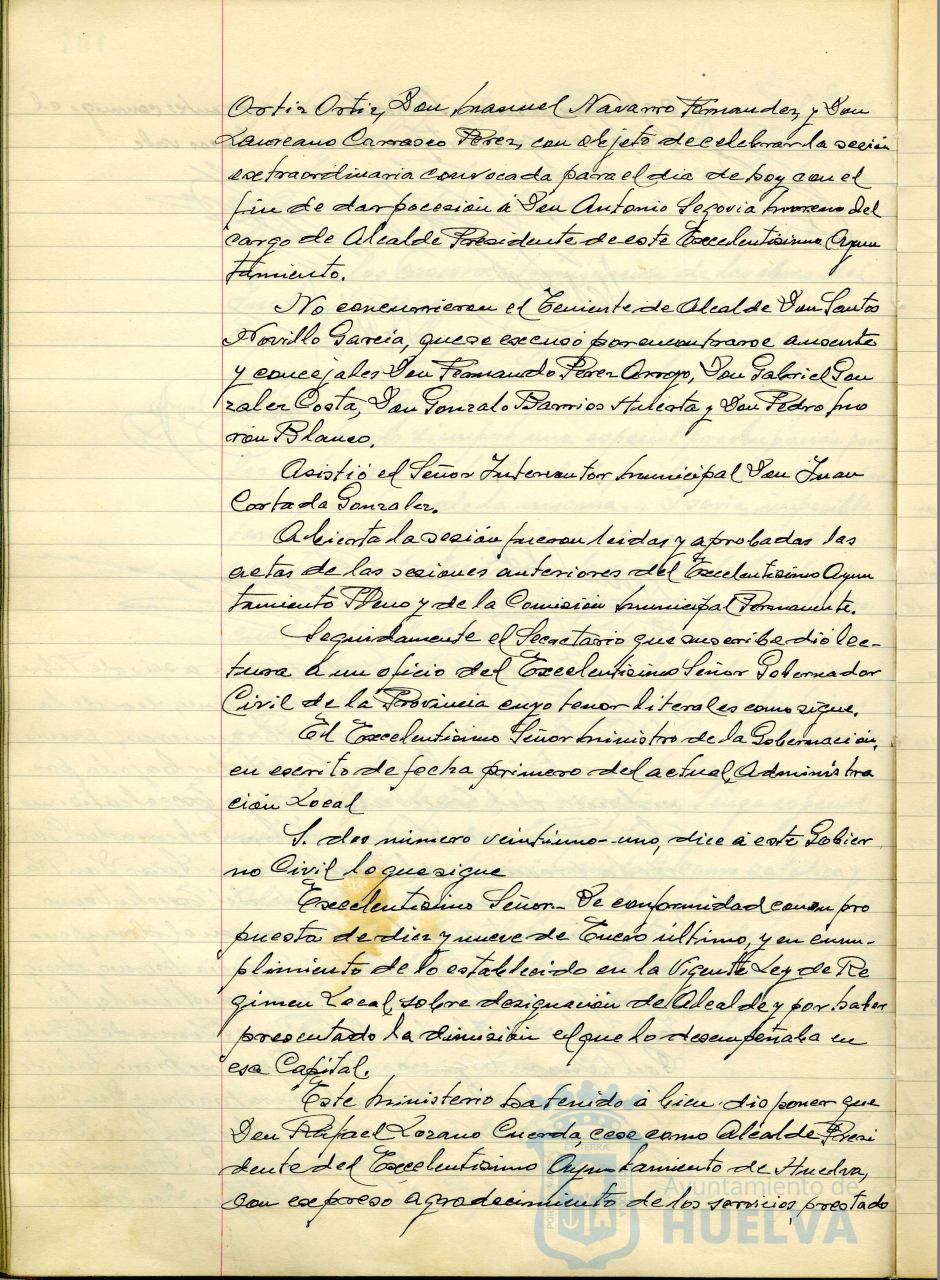 Ortiz Ortiz, Don Manuel Navarro Fernandez, y Don
Laureano Carrasco Perez, con objeto de celebrar la sesión
extraordinaria convocada para el dia de hoy con el
fin de dar posesión á Don Antonio Segovia Moreno del
cargo de Alcalde Presidente de este Excelentisimo Ayun
tamiento.
No concurrieron el Teniente de Alcalde Don Santos
Novillo García, que se excusó por encontrarse ausente
y concejales Don Fernando Perez Arroyo, Don Gabriel Gon
zalez Costa, Don Gonzalo Barrios Huerta y Don Pedro Mo
rón Blanco.
Asistió el Señor Interventor Municipal Don Juan
Cortada Gonzalez.
Abierta la sesión fueron leidas y aprobadas las
actas de las sesiones anteriores del Excelentisimo Ayun
tamiento Pleno y de la Comisión Municipal Permanente.
Seguidamente el Secretario que suscribe dió lec-
tura á un oficio del Excelentisimo Señor Gobernador
Civil de la Provincia cuyo tenor literal es como sigue.
El Excelentisimo Señor Ministro de la Gobernación,
en escrito de fecha primero del actual, Administra
ción Local
S. dos número veintiuno-uno, dice á este Gobier
no Civil lo que sigue
Excelentisimo Señor.- De conformidad con su pro
puesta de diez y nueve de Enero último, y en cum-
plimiento de lo establecido en la Vigente Ley de Re
gimen Local, sobre designación de Alcalde y por haber
presentado la dimisión el que lo desempeñaba en
esa Capital.
Este Ministerio ha tenido á bien disponer que
Don Rafael Lozano Cuerda, cese como Alcalde Presi
dente del Excelentisimo Ayuntamiento de Huelva,
con expreso agradecimiento de los servicios prestado
Ayuntamiento de
HUELVA